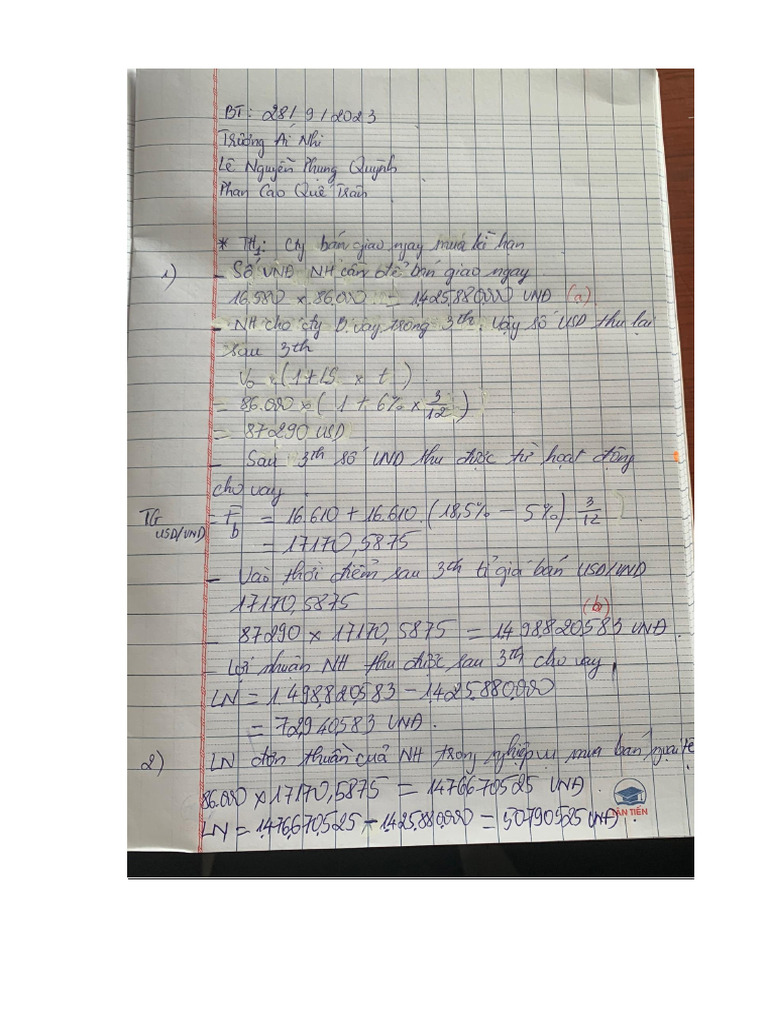 BT: 28/9/2023
Trương Ái Nhi
Lê Nguyễn Phụng Quỳnh
Phan Cao Quế Trân
* TH1: Cty bán giao ngay mua kì hạn
1) - Số VNĐ NH cần để bán giao ngay
16.580 x 86.000 = 1425.880.000 VNĐ (a)
- NH cho cty B vay trong 3th. Vậy số USD thu lại
sau 3th
V0 x (1 + LS x t)
= 86.000 x (1 + 6% x 3/12)
= 87290 USD
- Sau 3th số VND thu được từ hoạt động
cho vay.
TG USD/VND = Fb = 16.610 + 16.610.(18,5% - 5%).3/12
= 17170,5875
- Vào thời điểm sau 3th tỉ giá bán USD/VND
17170,5875
(b)
- 87290 x 17170,5875 = 1498820583 VNĐ.
- Lợi nhuận NH thu được sau 3th cho vay
LN = 1.498.820.583 - 1.425.880.000
= 72.940.583 VNĐ.
2) LN đơn thuần của NH trong nghiệp vụ mua bán ngoại tệ
86.000 x 17170,5875 = 1476670525 VNĐ.
LN = 1.476.670.525 - 1.425.880.000 = 50790525 VNĐ.